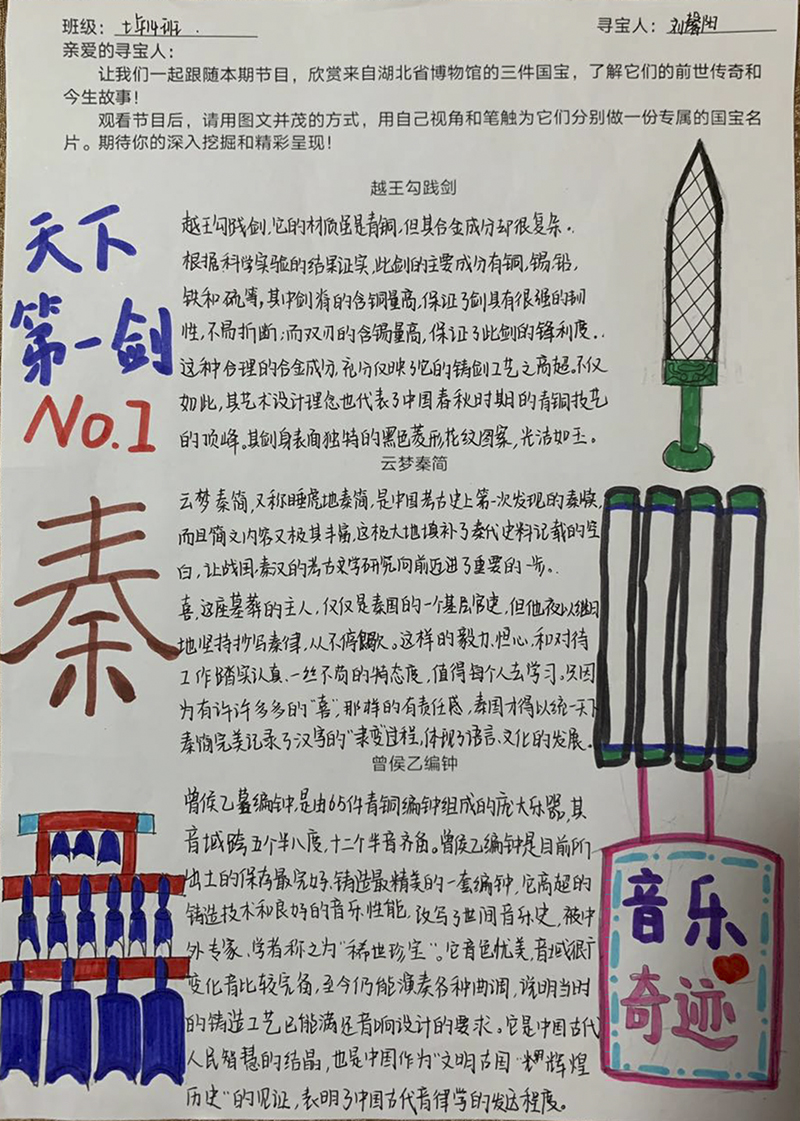 班级：七年14班.
寻宝人：刘馨阳
亲爱的寻宝人：
让我们一起跟随本期节目，欣赏来自湖北省博物馆的三件国宝，了解它们的前世传奇和
今生故事！
观看节目后，请用图文并茂的方式，用自己视角和笔触为它们分别做一份专属的国宝名
片。期待你的深入挖掘和精彩呈现！
越王勾践剑
天下
第一剑
No.1
越王勾践剑，它的材质虽是青铜，但其合金成分却很复杂。
根据科学实验的结果证实，此剑的主要成分有铜，锡，铅，
铁和硫等，其中剑脊的含铜量高，保证了剑具有很强的韧
性，不易折断；而双刃的含锡量高，保证了此剑的锋利度。
这种合理的合金成分，充分反映了它的铸剑工艺之高超。不仅
如此，其艺术设计理念也代表了中国春秋时期的青铜技艺
的顶峰。其剑身表面独特的黑色菱形花纹图案，光洁如玉。
云梦秦简
秦
云梦秦简，又称睡虎地秦简，是中国考古史上第一次发现的秦牍，
而且简文内容又极其丰富，这极大地填补了秦代史料记载的空
白，让战国、秦汉的考古文学研究向前迈进了重要的一步。
喜，这座墓葬的主人，仅仅是秦国的一个基层官吏，但他夜以继日
地坚持抄写秦律，从不停歇。这样的毅力、恒心，和对待
工作踏实认真、一丝不苟的态度，值得每个人去学习。只因
为有许许多多的“喜”，那样的有责任感，秦国才得以统一天下
秦简完美记录了汉字的“隶变”过程，体现了语言、文化的发展。
曾侯乙编钟
曾侯乙墓编钟，是由65件青铜编钟组成的庞大乐器，其
音域跨五个半八度，十二个半音齐备。曾侯乙编钟是目前所
出土的保存最完好、铸造最精美的一套编钟，它高超的
铸造技术和良好的音乐性能，改写了世间音乐史，被中
外专家、学者称之为“稀世珍宝”。它音色优美，音域很广
变化音比较完备，至今仍能演奏各种曲调，说明当时
的铸造工艺已能满足音响设计的要求。它是中国古代
人民智慧的结晶，也是中国作为“文明古国”辉煌
历史”的见证，表明了中国古代音律学的发达程度。
音乐
奇迹